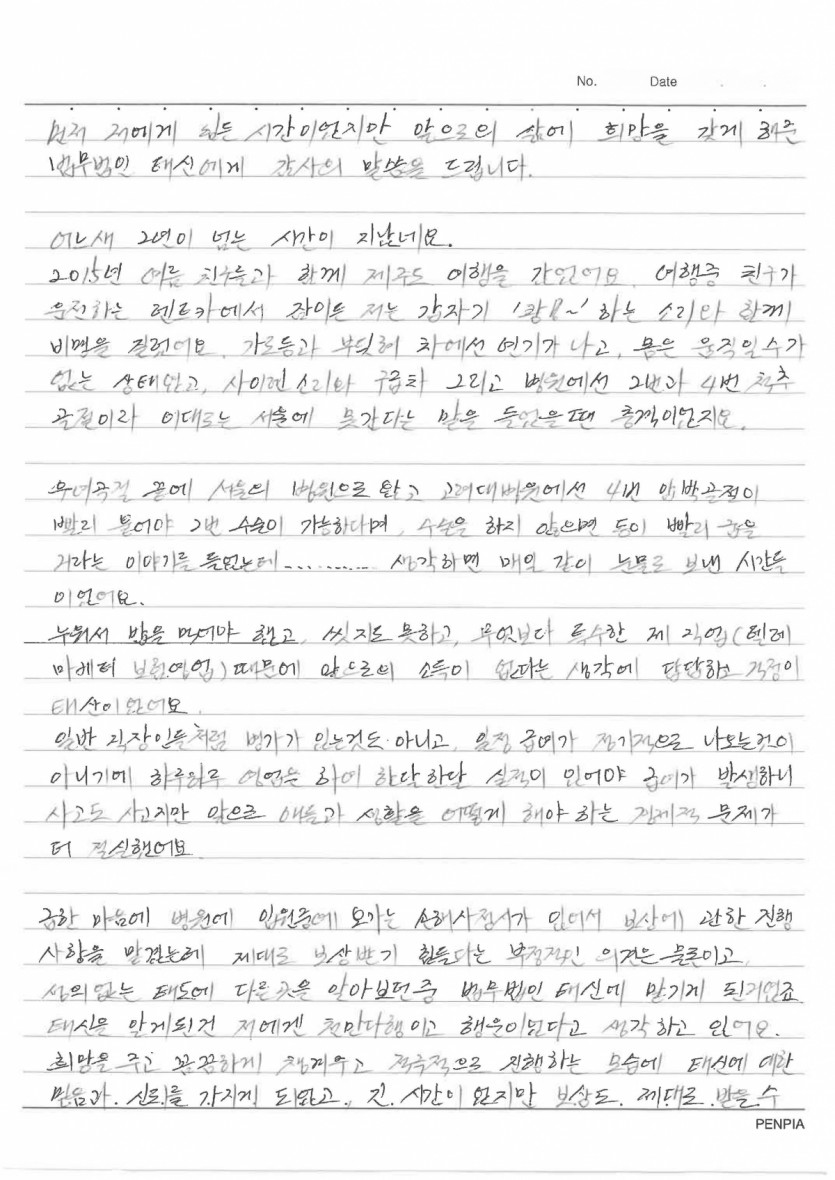 No. Date
먼저 저에게 힘든 시간이었지만 앞으로의 삶에 희망을 갖게 해준
법무법인 태신에게 감사의 말씀을 드립니다.
어느새 2년이 넘는 시간이 지났네요.
2015년 여름 친구들과 함께 제주도 여행을 갔었어요. 여행중 친구가
운전하는 렌트카에서 잠이든 저는 갑자기 '쾅!~' 하는 소리와 함께
비명을 질렀어요. 가로등과 부딪혀 차에선 연기가 나고, 몸은 움직일수가
없는 상태였고, 사이렌 소리와 구급차 그리고 병원에선 2번과 4번 척추
골절이라 이대로는 서울에 못간다는 말을 들었을땐 충격이었지요.
우여곡절 끝에 서울의 병원으로 왔고 고려대병원에선 4번 압박골절이
빨리 붙어야 2번 수술이 가능하다며, 수술을 하지 않으면 등이 빨리 굽을
거라는 이야기를 들었는데............ 생각하면 매일 같이 눈물로 보낸 시간들
이었어요.
누워서 밥을 먹어야 했고, 씻지도 못하고, 무엇보다 특수한 제 직업(텔레
마케터 보험영업)때문에 앞으로의 소득이 없다는 생각에 답답하고 걱정이
태산이었어요.
일반 직장인들처럼 병가가 있는것도 아니고, 일정 급여가 정기적으로 나오는것이
아니기에 하루하루 영업을 하여 한달한달 실적이 있어야 급여가 발생하니
사고도 사고지만 앞으로 애들과 생활을 어떻게 해야 하는 경제적 문제가
더 절실했어요.
급한 마음에 병원에 입원중에 오가는 손해사정사가 있어서 보상에 관한 진행
사항을 맡겼는데 제대로 보상받기 힘들다는 부정적인 의견은 물론이고,
성의없는 태도에 다른곳을 알아보던중 법무법인 태신에 맡기게 된거였죠.
태신을 알게된건 저에겐 천만다행이고 행운이었다고 생각하고 있어요.
희망을 주고 꼼꼼하게 챙겨주고 적극적으로 진행하는 모습에 태신에 대한
믿음과 신뢰를 가지게 되었고, 긴 시간이 였지만 보상도 제대로 받을 수
PENPIA